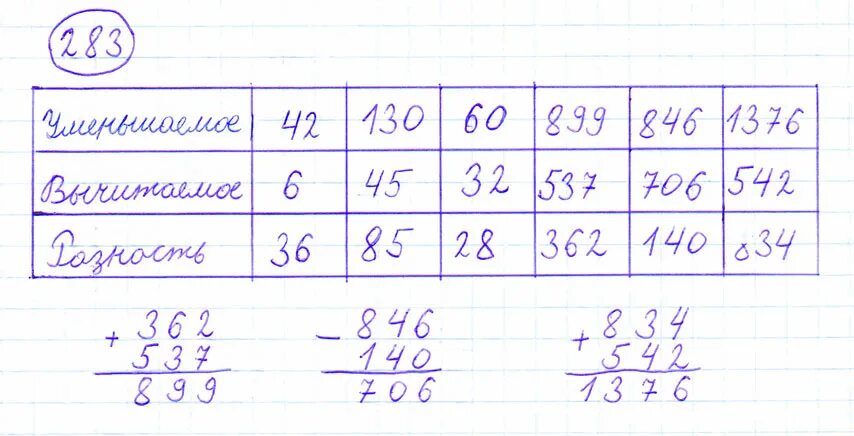 283
Уменьшаемое 42 130 60 899 846 1376
Вычитаемое 6 45 32 537 706 542
Разность 36 85 28 362 140 834
+ 362 - 846 + 834
537 140 542
899 706 1376